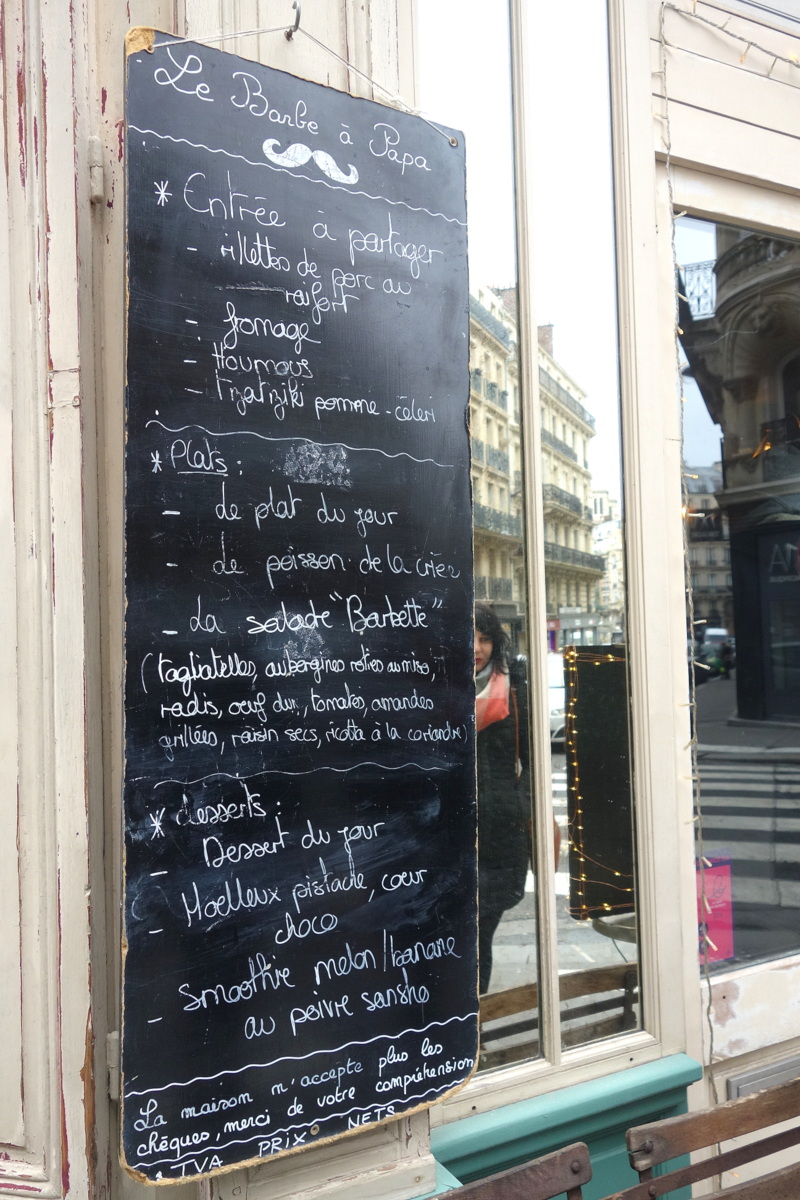 Le Barbe à Papa
* Entrée à partager
- rillettes de porc au
raifort
- fromage
- Houmous
- Tzatziki pomme-céleri
* Plats :
- de plat du jour
- de poisson de la criée
- La salade "Barbette"
(tagliatelles, aubergines roties au miso,
radis, oeuf dur, tomates, amandes
grillées, raisin secs, ricotta à la coriandre)
* desserts :
Dessert du jour
- Moelleux pistache, coeur
choco
- Smoothie melon/banane
- au poivre sansho
La maison n'accepte plus les
chèques, merci de votre compréhension
TVA PRIX NETS